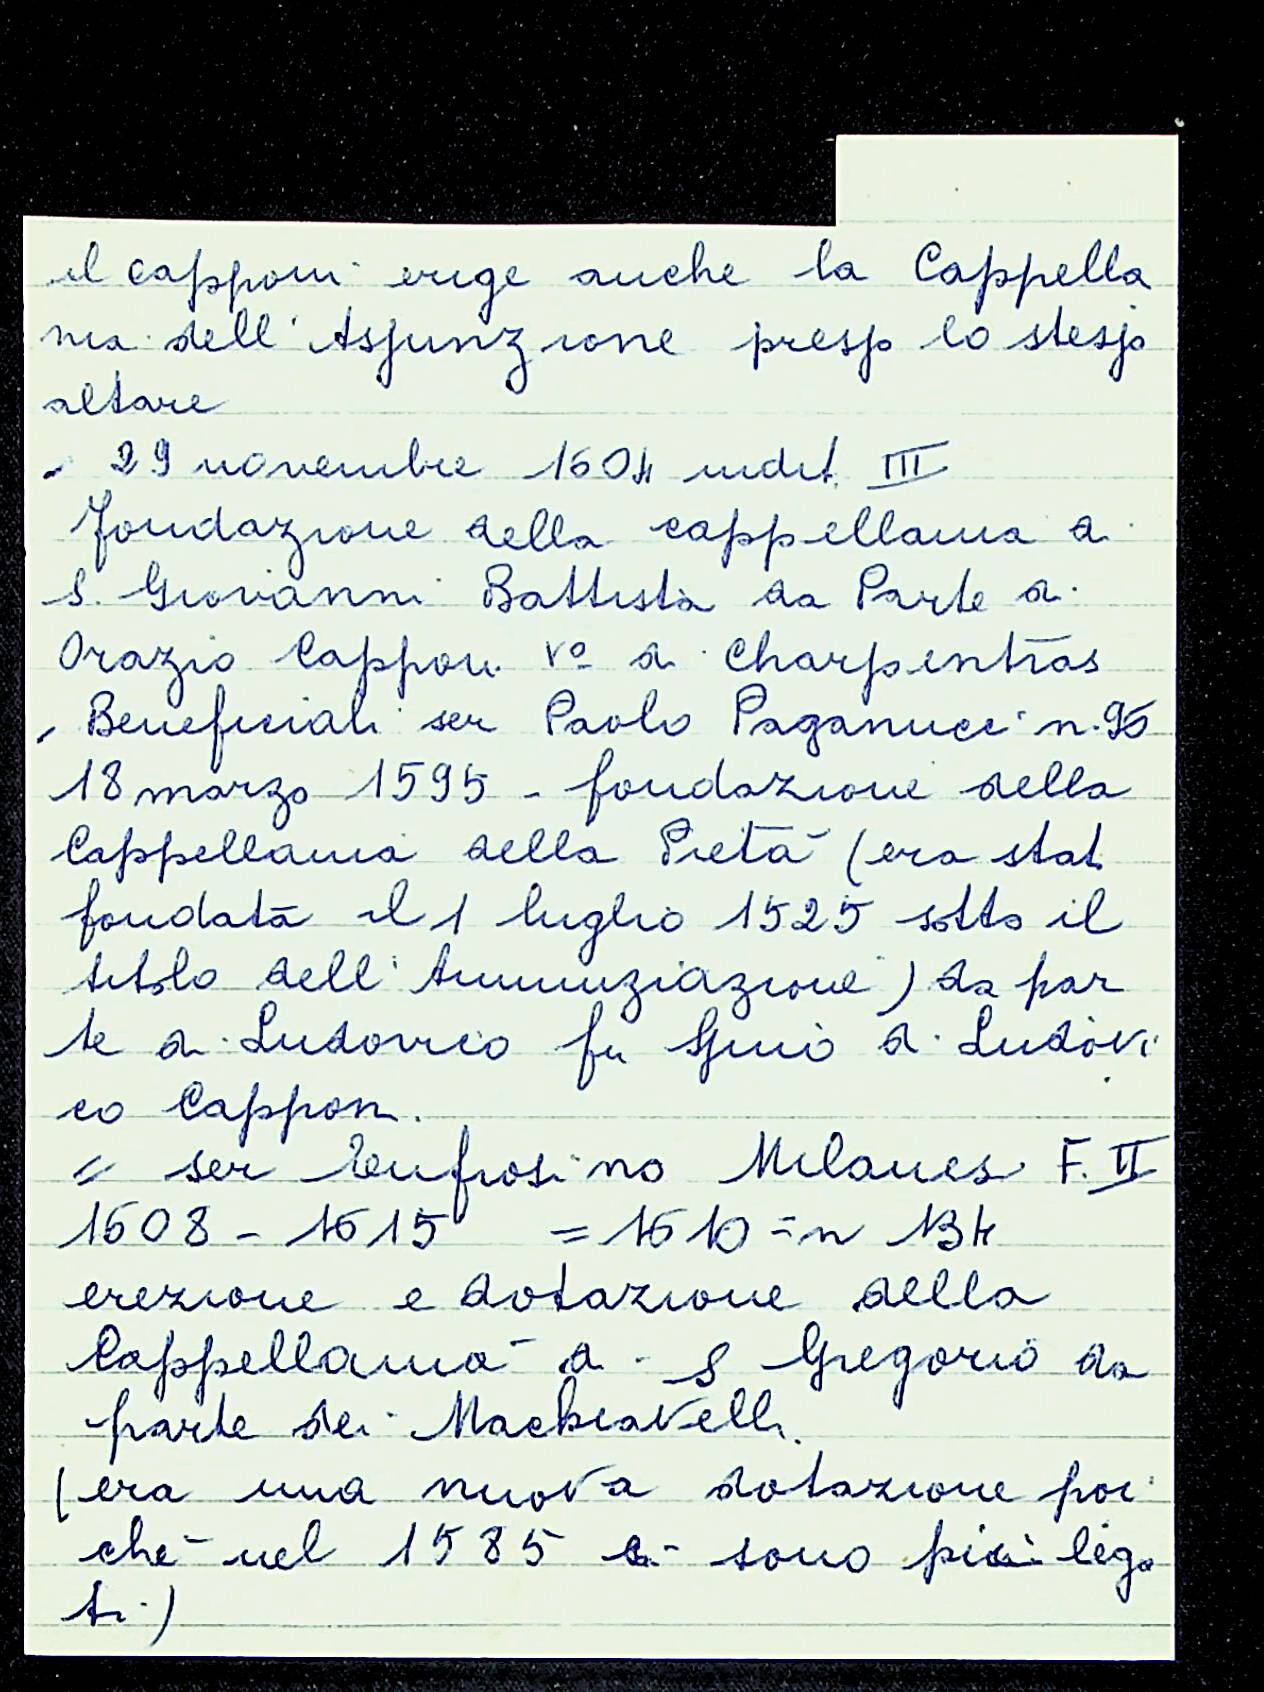 il capponi erige anche la Cappella
nia dell'Assunzione presso lo stesso
altare
29 novembre 1604 indit. III
fondazione della cappellania di
S. Giovanni Battista da Parte di
Orazio Capponi Vo di Charpentras
Beneficiali ser Paolo Paganucci n. 96
18 marzo 1595 - fondazione della
Cappellania della Pietà (era stat.
fondata il 1 luglio 1525 sotto il
titolo dell'Annunziazione) da par
te di Ludovico fu Gino di Ludovi
co Capponi.
= ser Renfrosino Milanesi F. VI
1608 - 1615 = 1610 = n 134
erezione e dotazione della
Cappellania di S Gregorio da
parte dei Machiavelli.
(era una nuova dotazione poi
ché nel 1585 ci sono più lega
ti.)